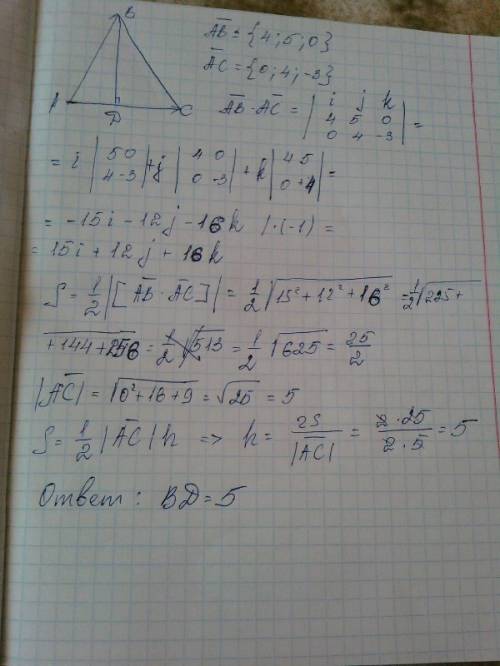 B
A D C
AB = {4; 5; 0}
AC = {0; 4; -3}
AB · AC = | i j k |
| 4 5 0 |
| 0 4 -3 | =
= i | 5 0 | + j | 4 0 | + k | 4 5 | =
| 4 -3 | | 0 -3 | | 0 +4 |
= -15i - 12j - 16k | · (-1) =
= 15i + 12j + 16k
S = 1/2 |[AB · AC]| = 1/2 √15² + 12² + 16² = 1/2 √225 +
+ 144 + 256 = 1/2 √513 = 1/2 √625 = 25/2
|AC| = √0² + 16 + 9 = √25 = 5
S = 1/2 |AC| h => h = 2S/|AC| = 2·25/2·5 = 5
Ответ: BD = 5